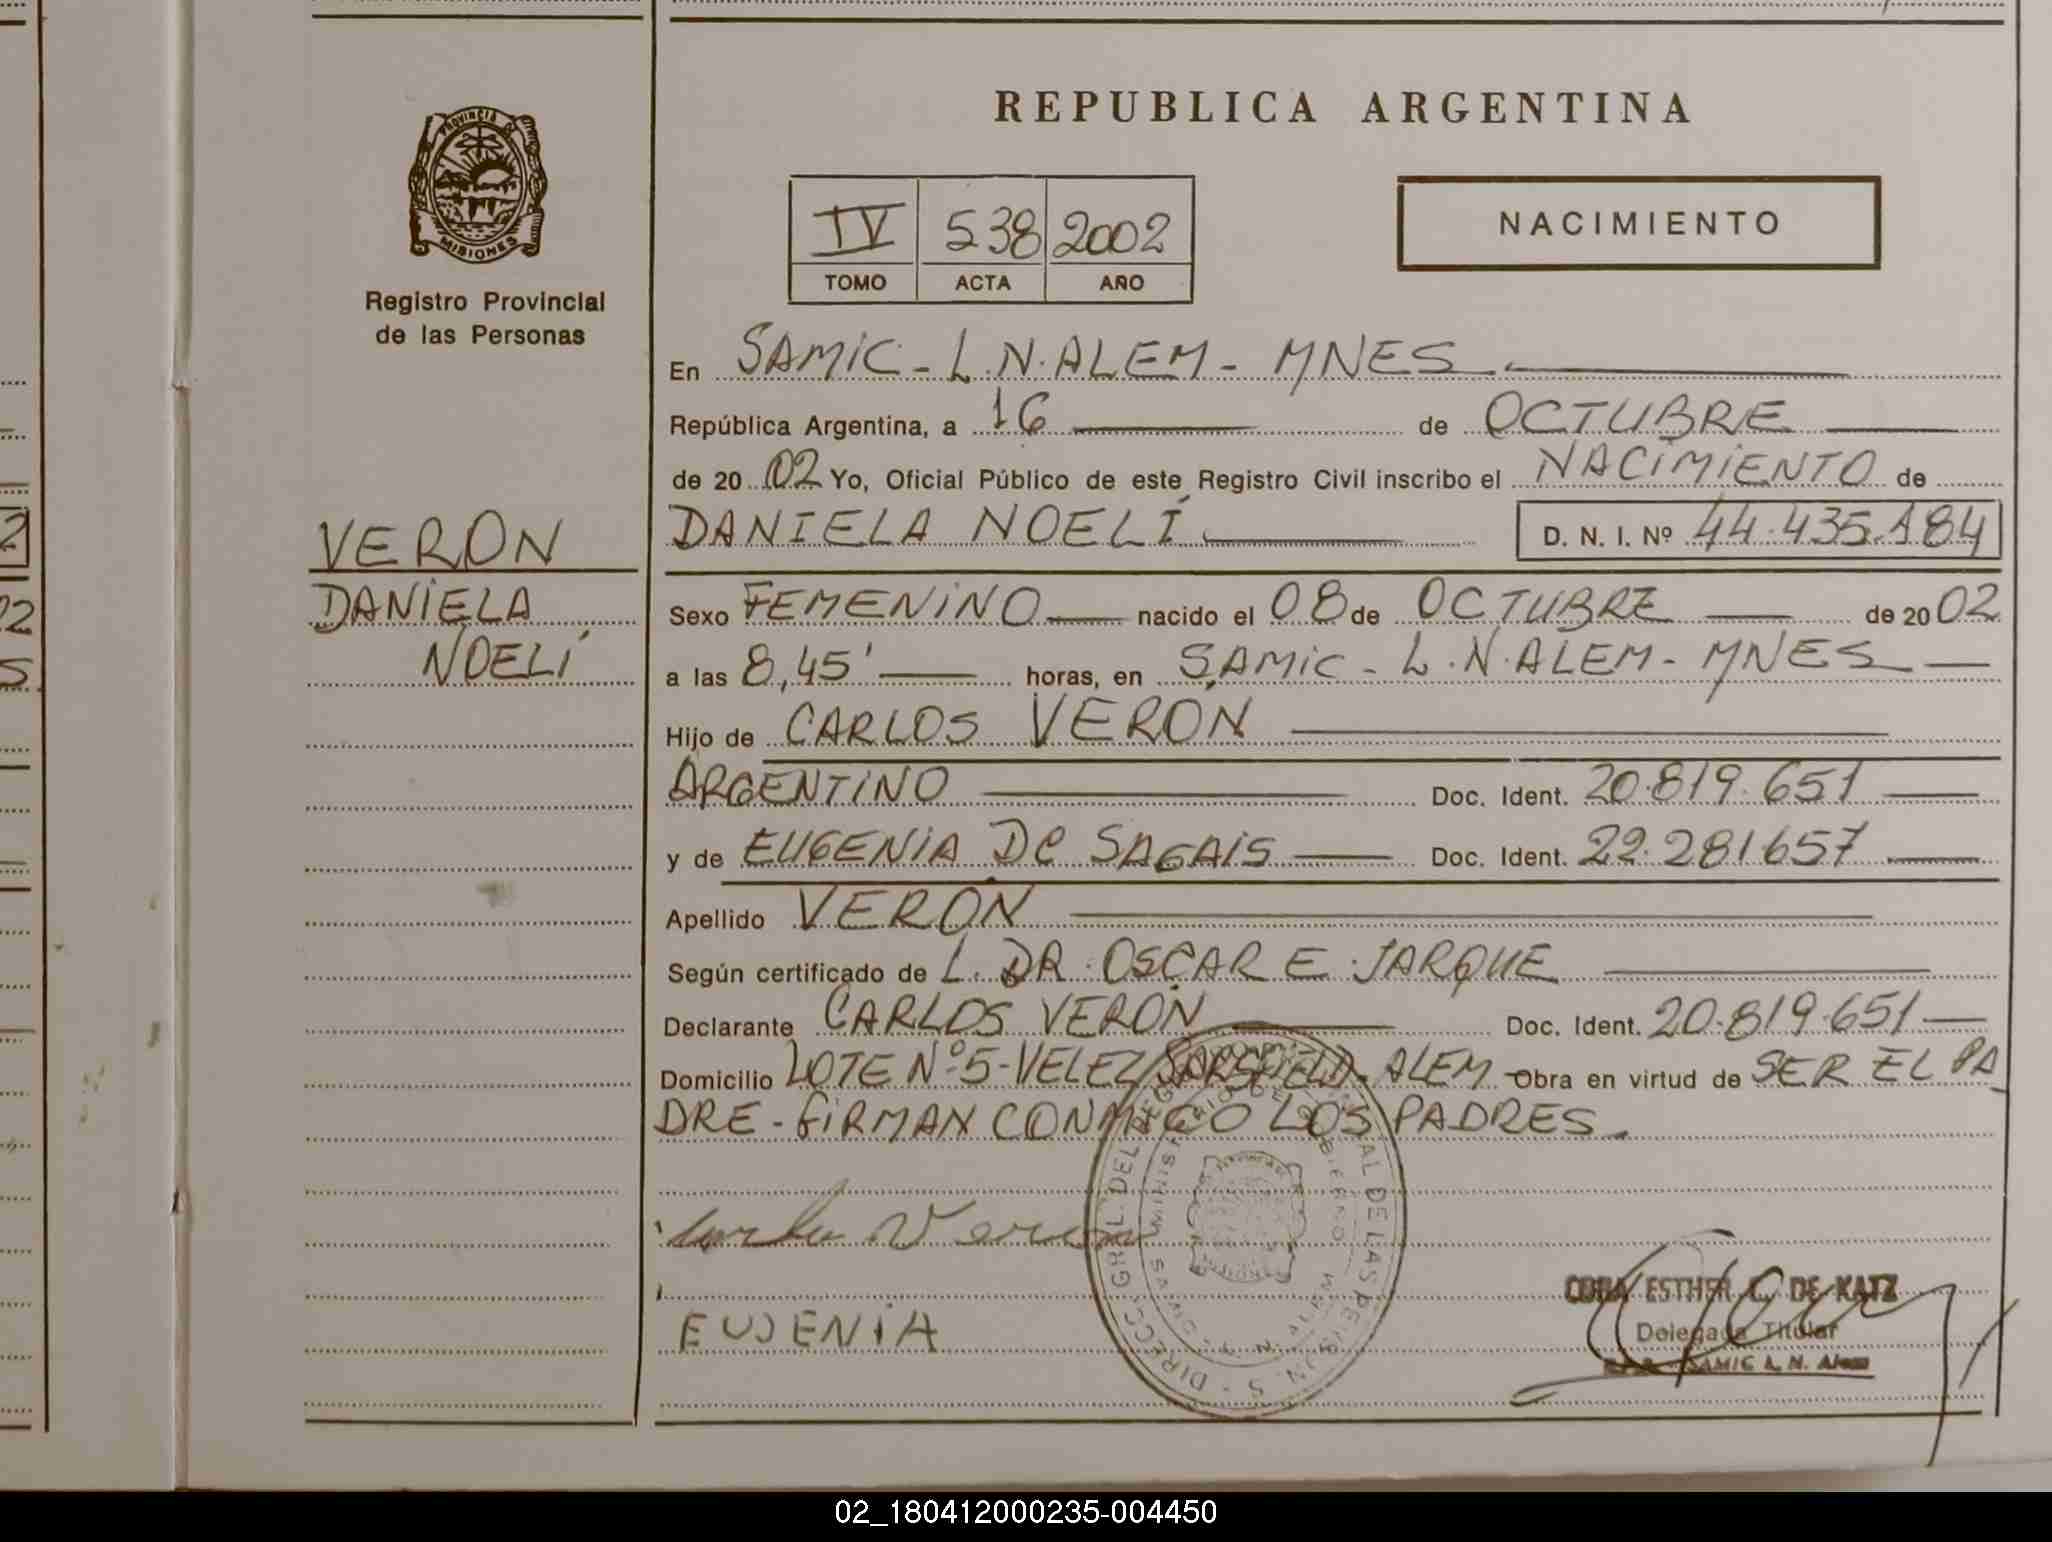 REPUBLICA ARGENTINA
PROVINCIA DE
MISIONES
Registro Provincial
de las Personas
IV 538 2002
TOMO ACTA AÑO
NACIMIENTO
En SAMIC - L.N.ALEM - MNES
República Argentina, a 16 de OCTUBRE
de 2002 Yo, Oficial Público de este Registro Civil inscribo el NACIMIENTO de
VERÓN
DANIELA NOELÍ D. N. I. Nº 44.435.184
DANIELA
NOELÍ
Sexo FEMENINO nacido el 08 de OCTUBRE de 2002
a las 8,45' horas, en SAMIC - L.N.ALEM - MNES
Hijo de CARLOS VERÓN
ARGENTINO Doc. Ident. 20.819.651
y de EUGENIA DE Doc. Ident. 22.281657
Apellido VERÓN
Según certificado de L. DR. OSCAR E. JARQUE
Declarante CARLOS VERÓN Doc. Ident. 20.819.651
Domicilio LOTE Nº 5 - VELEZ SARSFIELD - ALEM - Obra en virtud de SER EL PA
DRE - FIRMAN CONMIGO LOS PADRES.
Verón
EUJENIA
ESTHER C. DE KATZ
Delegada Titular
SAMIC L. N. Alem
02_180412000235-004450